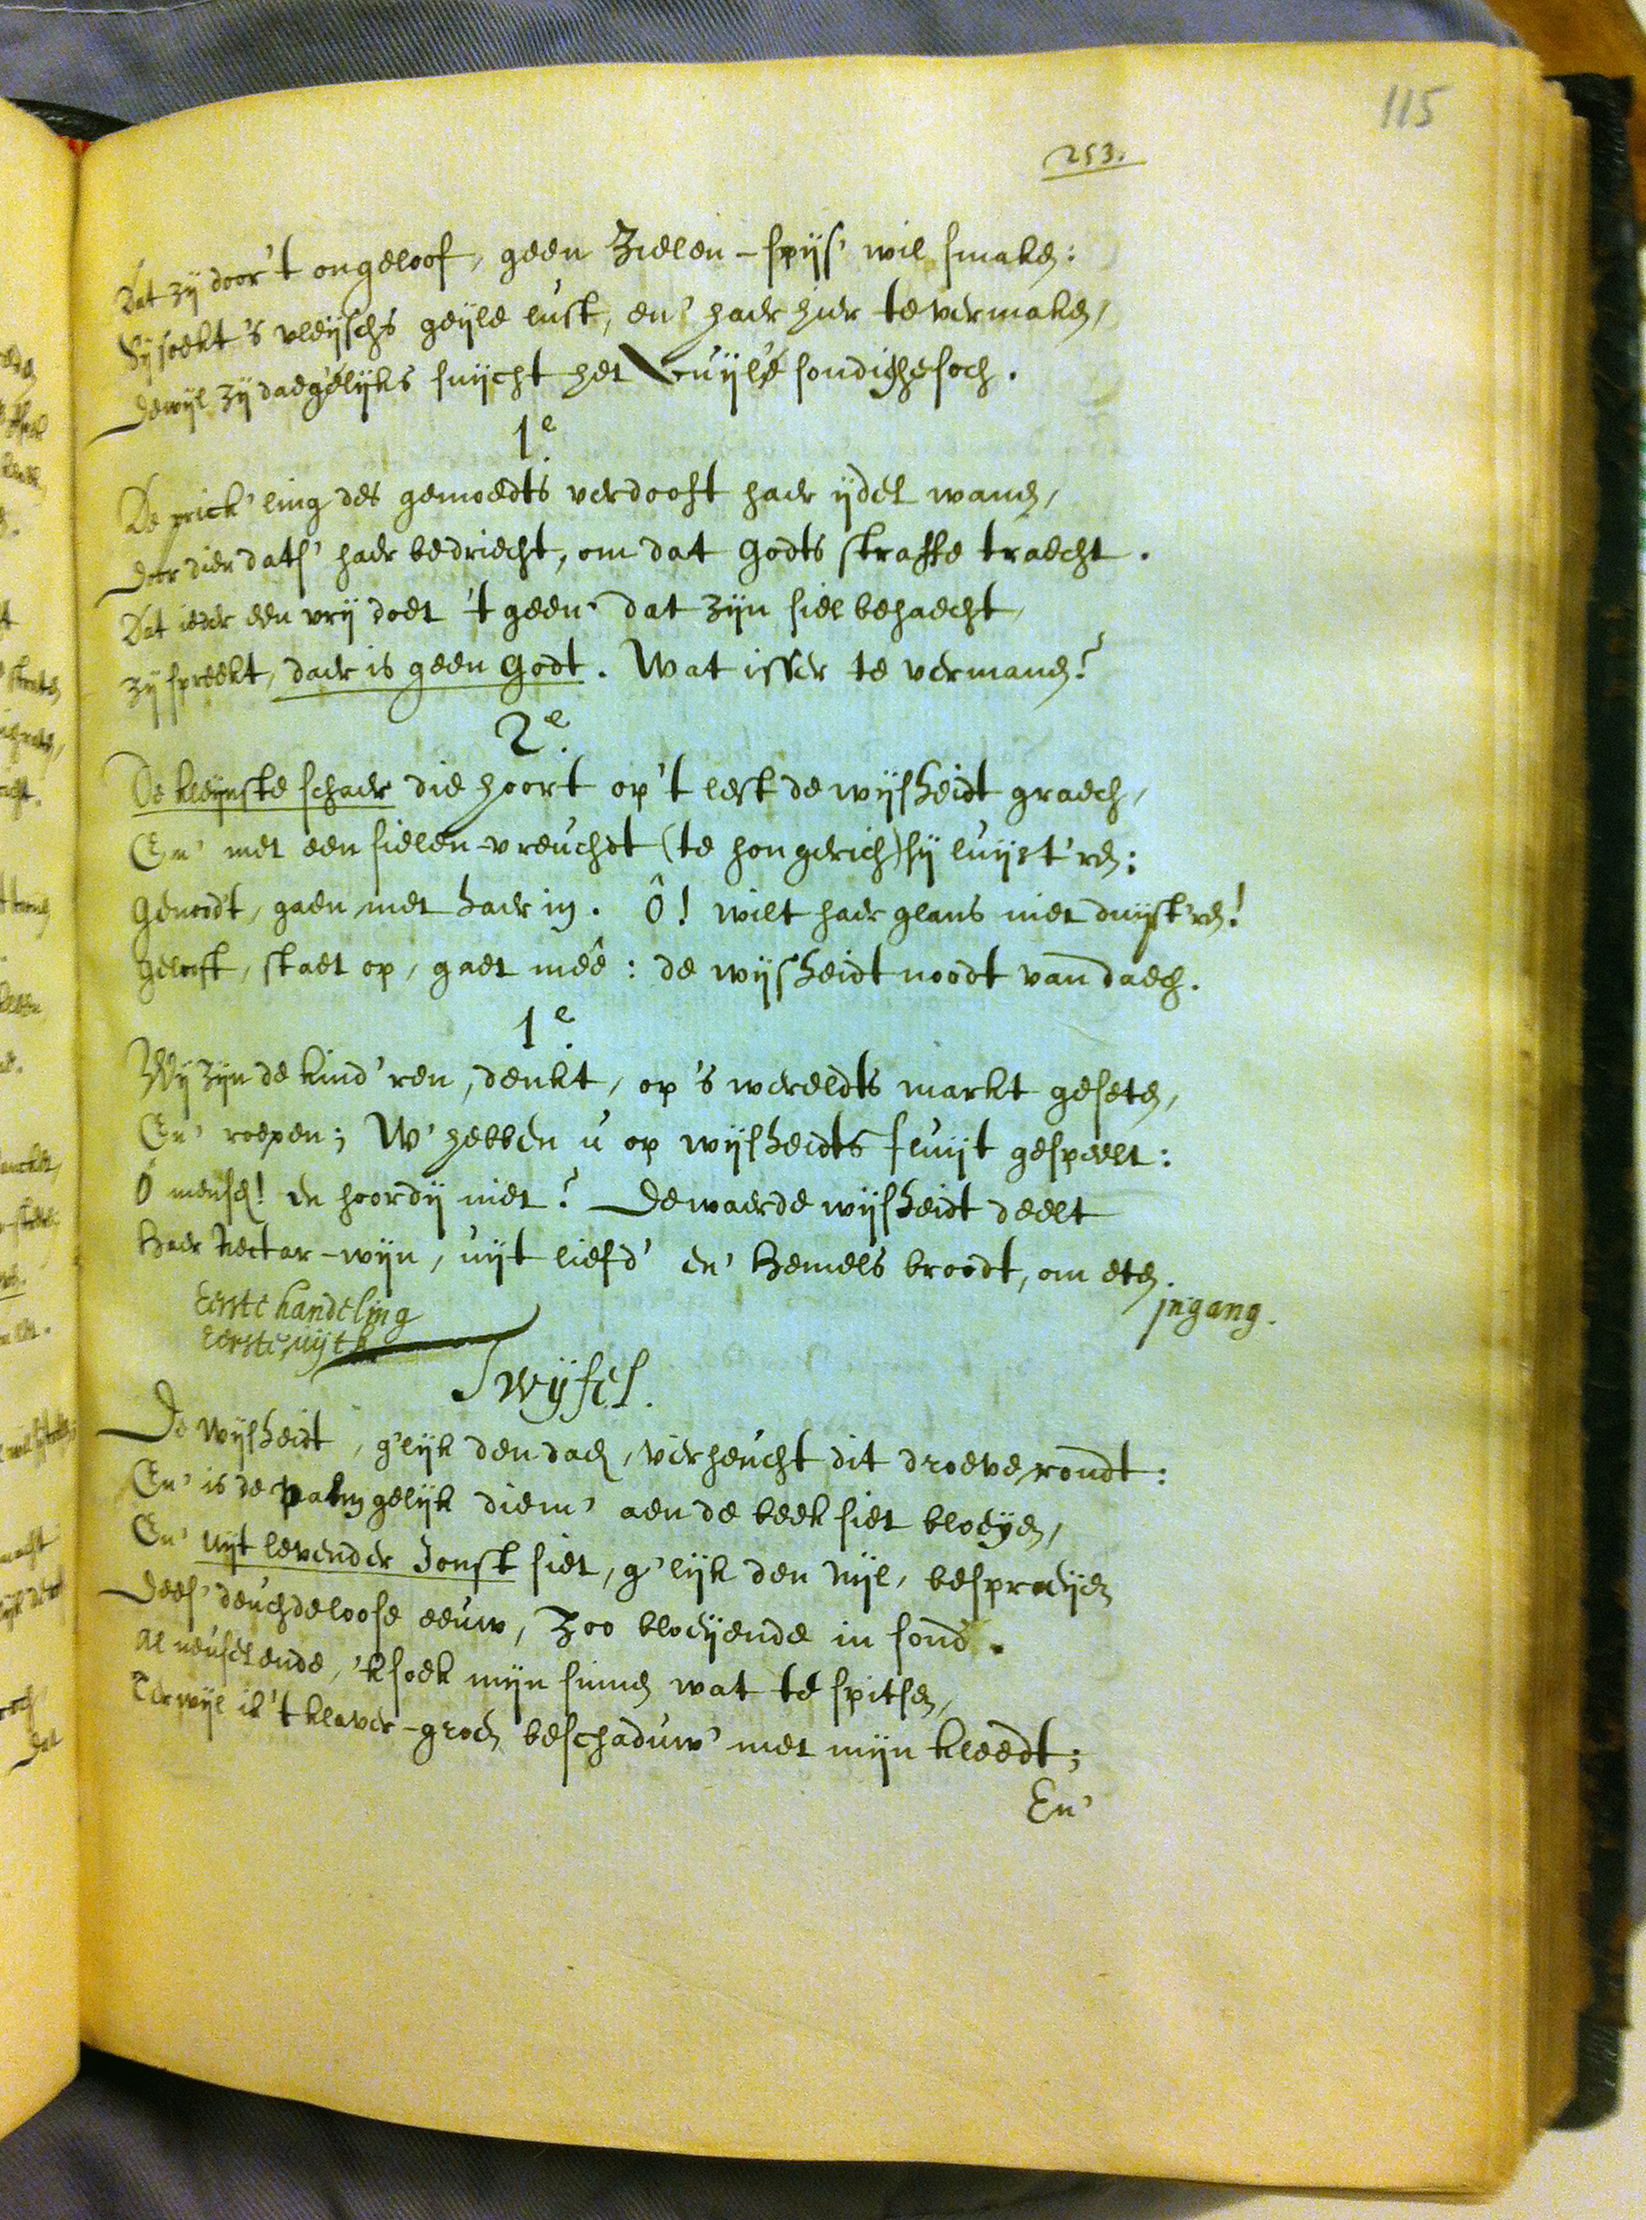 115
253.
Dat zij door 't ongeloof, geen Zielen-spijs' wil smaken:
Sij soekt 's vleijschs geijle lust, en' haer hier te vermaken,
Dewijl zij daegelijks suijcht het vuijle sondighe soch.
1e.
De prick'ling des gemoedts verdooft haer ijdel wanen,
Door dien dats' haer bedriecht, om dat Godts straffe traecht.
Dat ieder een vrij doet 't geen dat zijn siel behaecht,
zij spreekt, daer is geen Godt. Wat isser te vermanen?
2e.
De kleijnste schaer die hoort op 't lest de wijsheidt graech,
En' met een sielen-vreuchdt (te hongerich) sij luijst'ren:
Genoodt, gaen met haer in. Ô! wilt haer glans niet duijst'ren!
Gelooft, staet op, gaet meê: de wijsheidt noodt van daech.
1e.
Wij zijn de kind'ren, denkt, op 's wereldts markt geseten,
En' roepen; W' hebben u op wijsheidts fluijt gespeelt:
Ô mensch! en hoordij niet? De waerde wijsheidt deelt
Haer Nectar-wijn, uijt liefd' en' Hemels broodt, om eten.
jngang.
Eerste handeling
Eerste uijtk.
Twijfel.
De Wijsheidt, g'lijk den dach, verheucht dit droeve rondt:
En' is de palm gelijk diem' aen de beek siet bloeijen,
En' uijt levender Jonst siet, g'lijk den Nijl, besproeijen
Dees' deuchdeloose eeuw, Zoo bloeijende in sond.
Al neuselende, 'k soek mijn sinnen wat te spitsen,
Terwijl ik 't klaver-groen beschaduw' met mijn kleedt;
En'